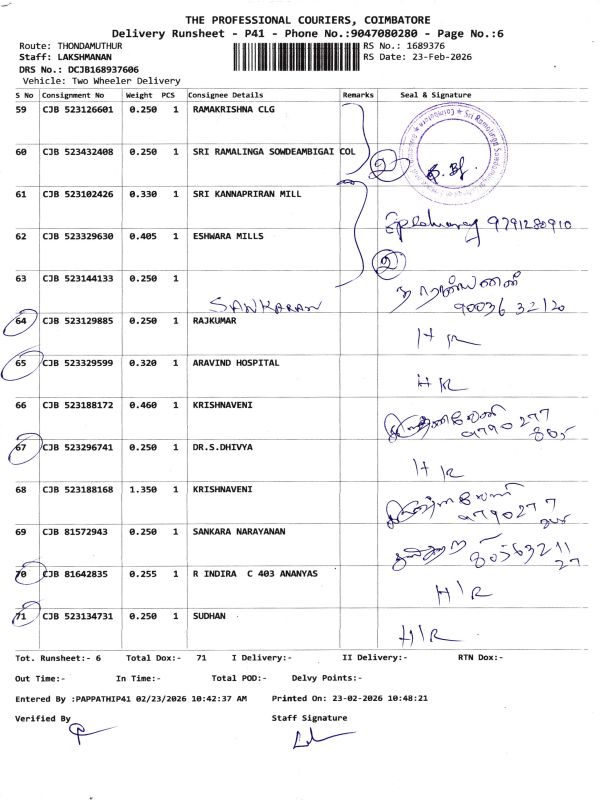 THE PROFESSIONAL COURIERS, COIMBATORE
Delivery Runsheet - P41 - Phone No.:9047080280 - Page No.:6
Route: THONDAMUTHUR RS No.: 1689376
Staff: LAKSHMANAN RS Date: 23-Feb-2026
DRS No.: DCJB168937606
Vehicle: Two Wheeler Delivery
S No Consignment No Weight PCS Consignee Details Remarks Seal & Signature
59 CJB 523126601 0.250 1 RAMAKRISHNA CLG
60 CJB 523432408 0.250 1 SRI RAMALINGA SOWDEAMBIGAI COL 2
61 CJB 523102426 0.330 1 SRI KANNAPRIRAN MILL
9791280910
62 CJB 523329630 0.405 1 ESHWARA MILLS
2
63 CJB 523144133 0.250 1
SANKARAN 90036 32120
64 CJB 523129885 0.250 1 RAJKUMAR H R
65 CJB 523329599 0.320 1 ARAVIND HOSPITAL
H R
66 CJB 523188172 0.460 1 KRISHNAVENI
9790277
67 CJB 523296741 0.250 1 DR.S.DHIVYA
H R
68 CJB 523188168 1.350 1 KRISHNAVENI
9790277
69 CJB 81572943 0.250 1 SANKARA NARAYANAN
80563211
27
70 CJB 81642835 0.255 1 R INDIRA C 403 ANANYAS
H/R
71 CJB 523134731 0.250 1 SUDHAN
H/R
Tot. Runsheet:- 6 Total Dox:- 71 I Delivery:- II Delivery:- RTN Dox:-
Out Time:- In Time:- Total POD:- Delvy Points:-
Entered By :PAPPATHIP41 02/23/2026 10:42:37 AM Printed On: 23-02-2026 10:48:21
Verified By Staff Signature